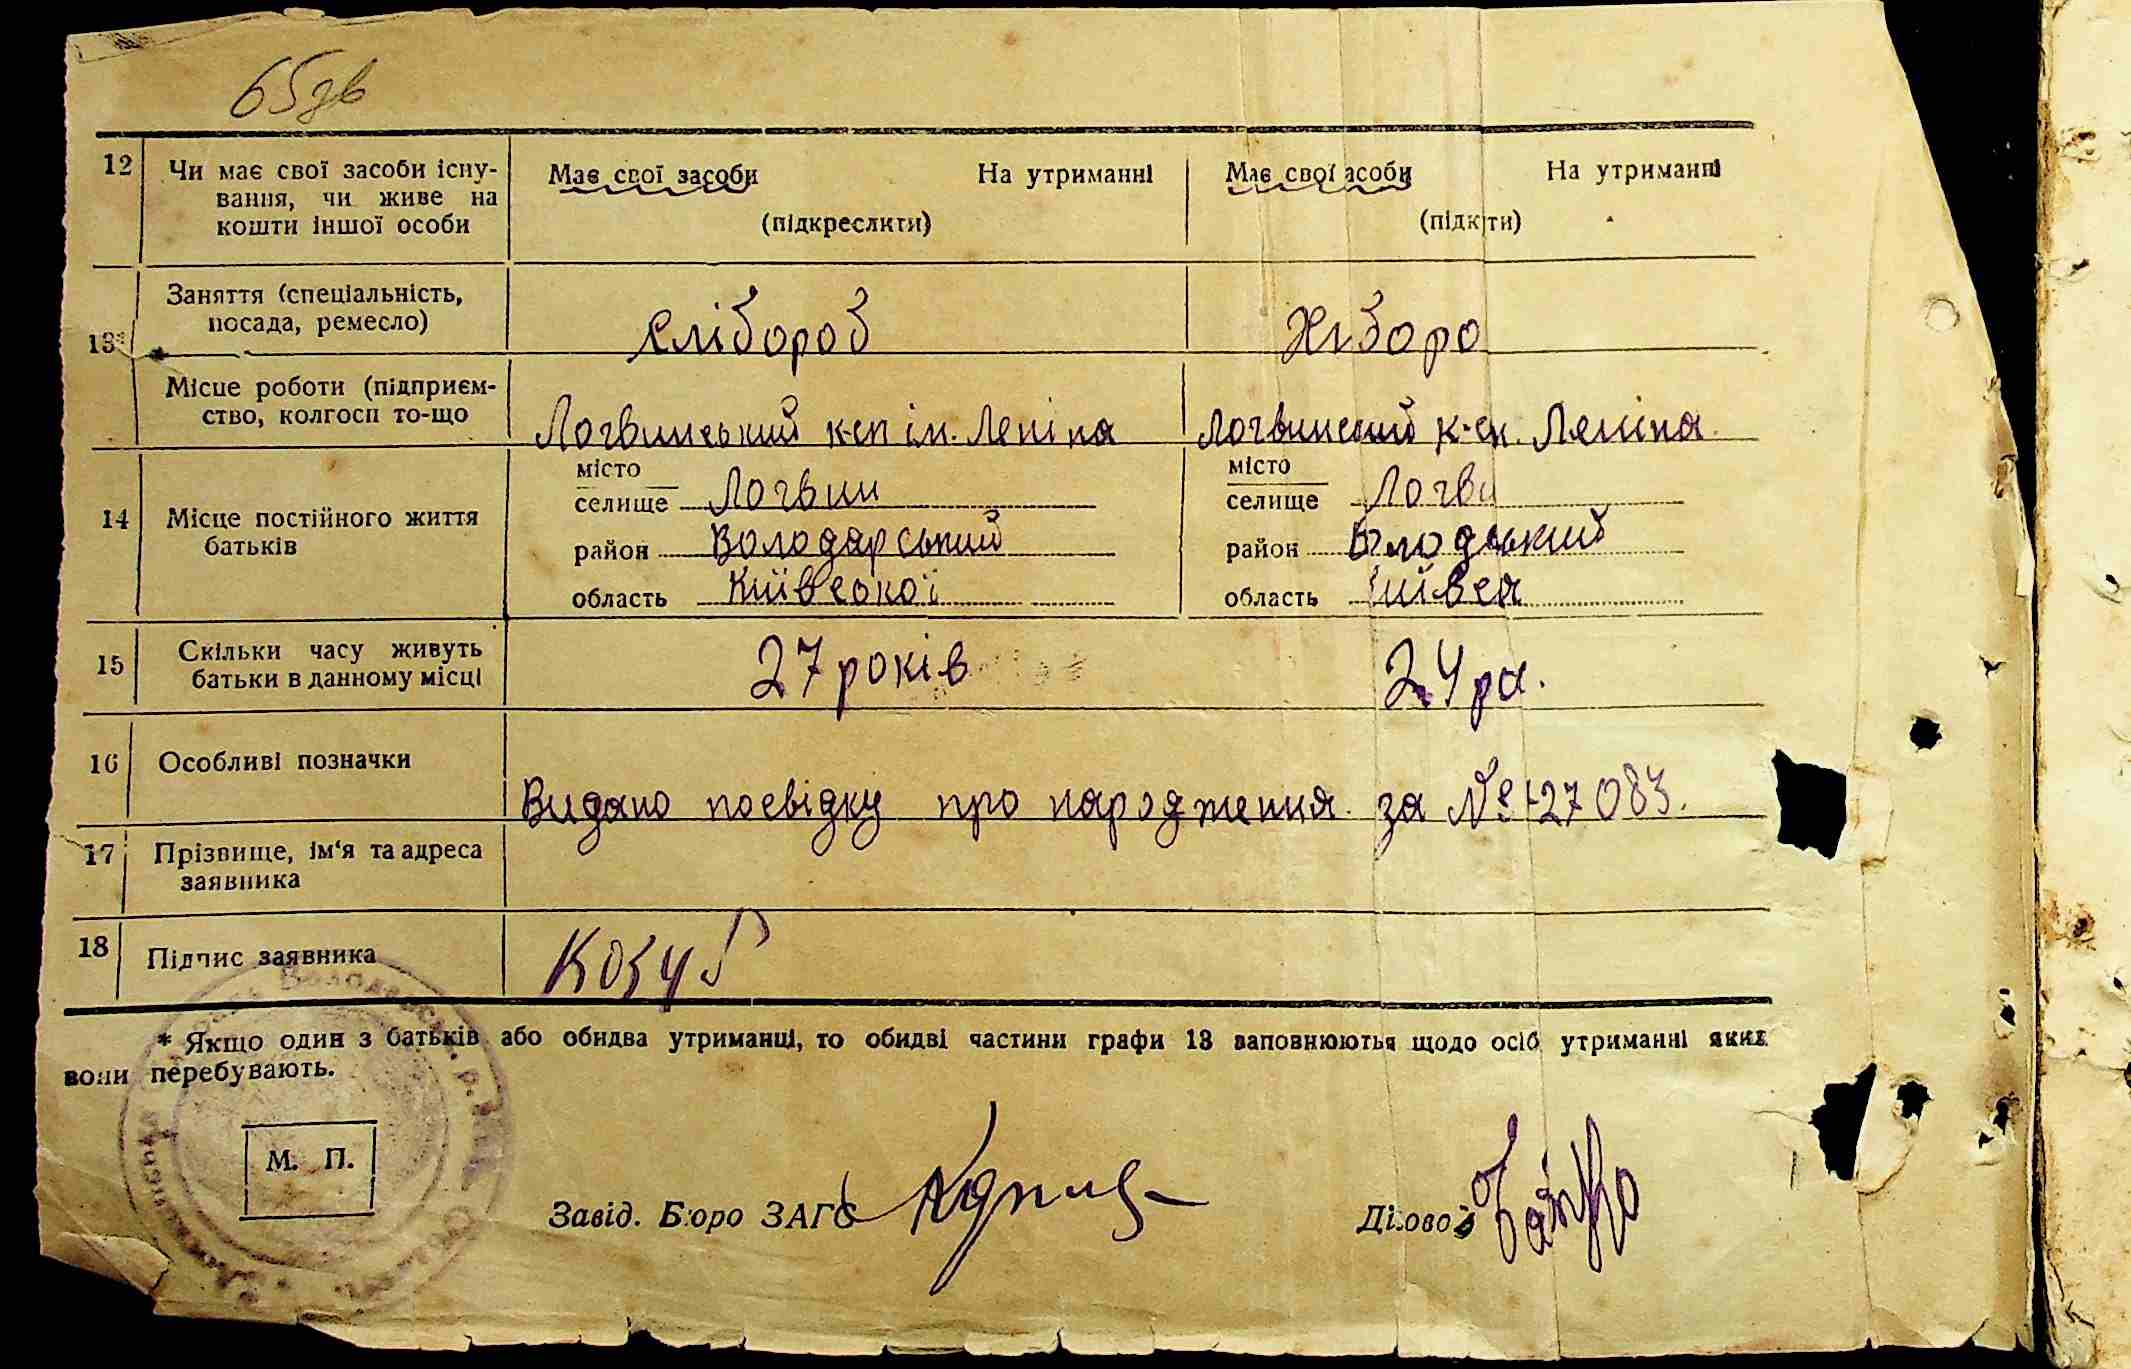 65зв
12 Чи має свої засоби існу- Має свої засоби На утриманні Має свої асоби На утриманні
вання, чи живе на
кошти іншої особи (підкреслити) (підкти)
Заняття (спеціальність,
посада, ремесло) хлібороб Хліборо
13*
Місце роботи (підприєм-
ство, колгосп то-що Логвинський к-сп ім. Леніна Логвинський к-сп. Леніна
місто місто
селище Логвин селище Логви
14 Місце постійного життя район Володарський район Володський
батьків
область Київської область
15 Скільки часу живуть 27 років 24 ра.
батьки в данному місці
16 Особливі позначки
Видано посвідку про народження за № 727083.
17 Прізвище, ім'я та адреса
заявника
18 Підпис заявника Козуб
* Якщо один з батьків або обидва утриманці, то обидві частини графи 13 заповнюються щодо осіб утриманні яких
вони перебувають.
М. П.
Завід. Бюро ЗАГС Діловод